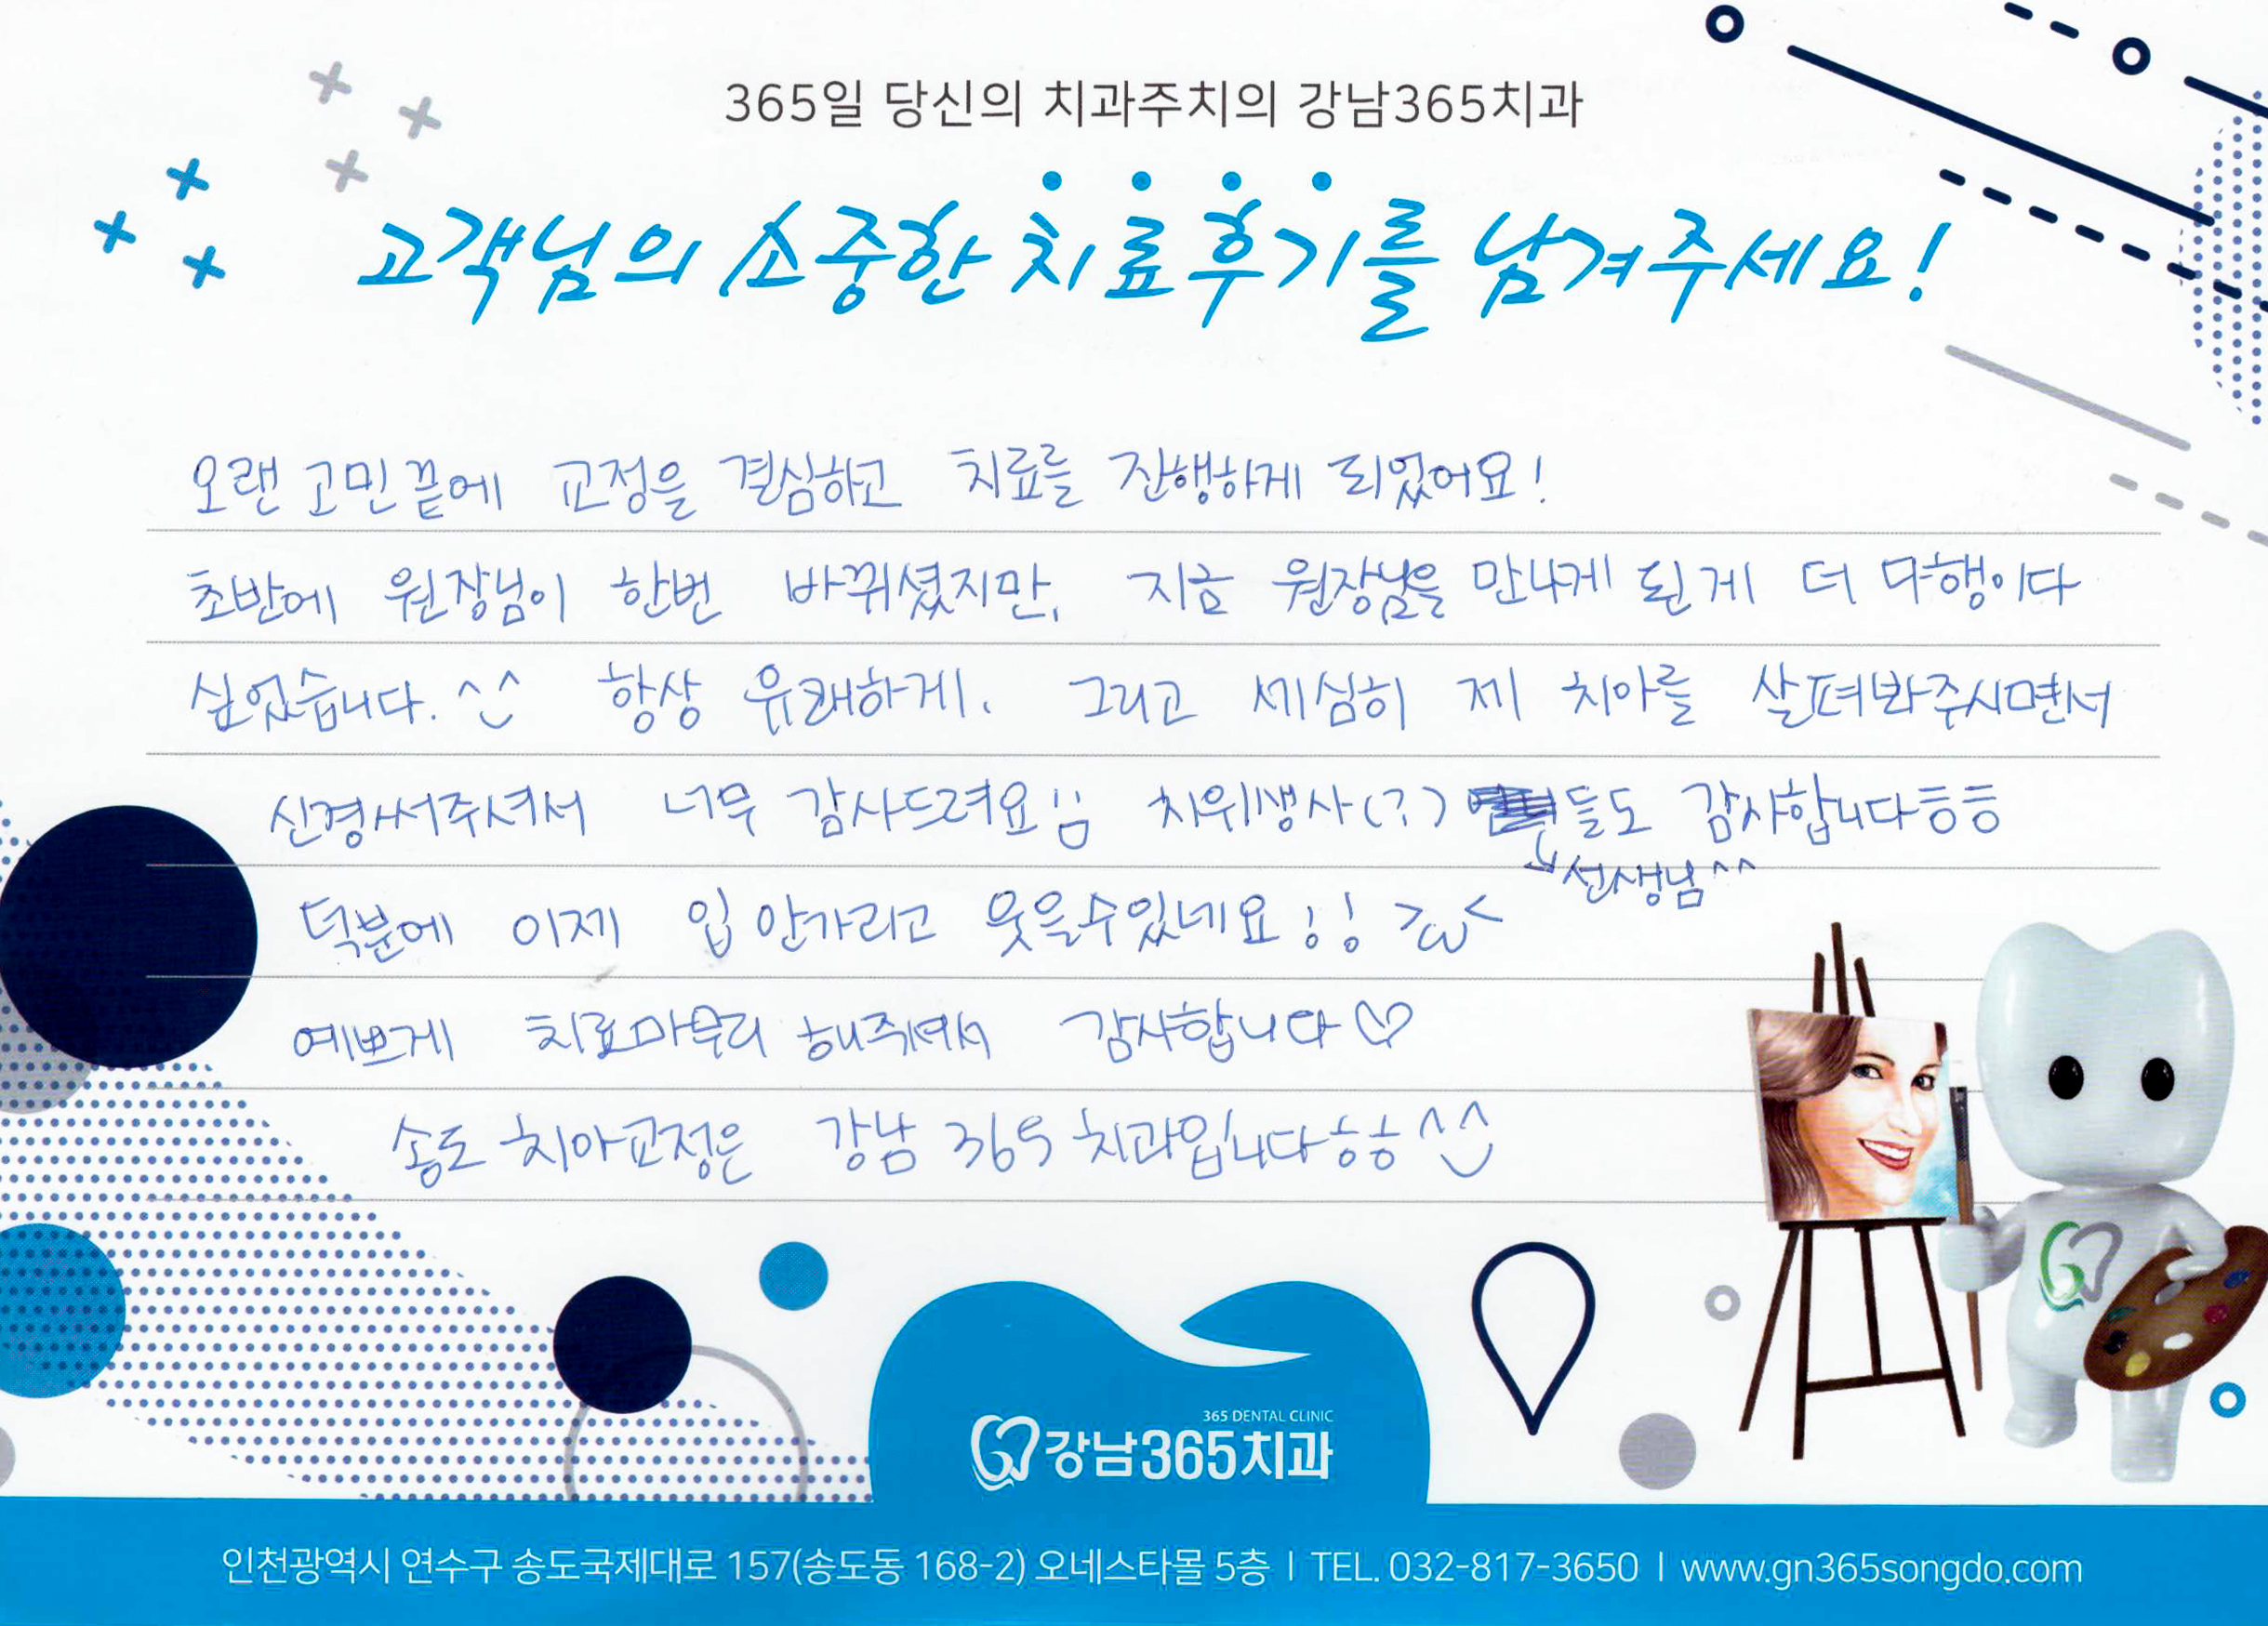 365일 당신의 치과주치의 강남365치과
고객님의 소중한 치료후기를 남겨주세요!
오랜 고민 끝에 교정을 결심하고 치료를 진행하게 되었어요!
초반에 원장님이 한번 바뀌셨지만, 지금 원장님을 만나게 된게 더 다행이다
싶었습니다. ^^ 항상 유쾌하게. 그리고 세심히 제 치아를 살펴봐주시면서
신경써주셔서 너무 감사드려요!! 치위생사(?) 들도 감사합니다ㅎㅎ
↳선생님^^
덕분에 이제 입 안가리고 웃을수있네요!! >ω<
예쁘게 치료마무리 해주셔서 감사합니다♡
송도 치아교정은 강남 365 치과입니다ㅎㅎ^^
365 DENTAL CLINIC
강남365치과
인천광역시 연수구 송도국제대로 157(송도동 168-2) 오네스타몰 5층 I TEL. 032-817-3650 I www.gn365songdo.com